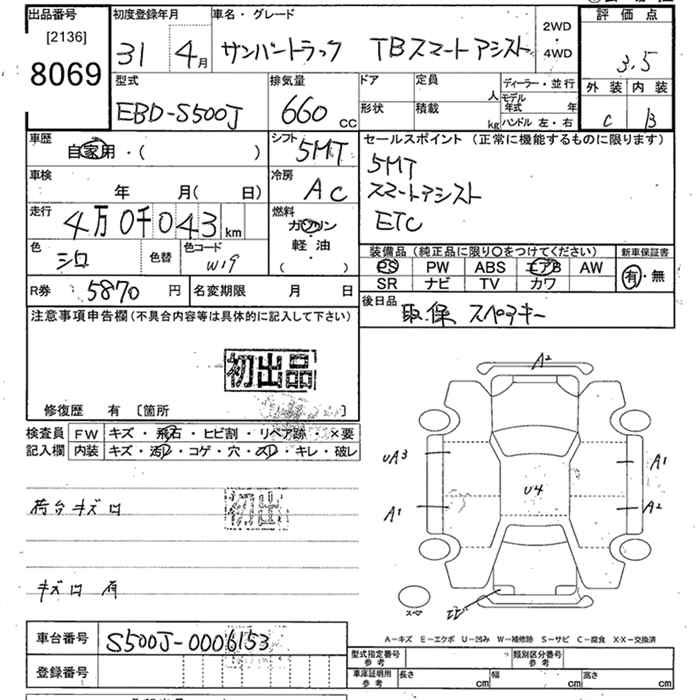 出品番号 初度登録年月 車名・グレード 評価点
[2136]
8069
31 4月 サンバートラック TBスマートアシスト 2WD 4WD 3.5
型式 排気量 ドア 定員 ディーラー・並行 外装 内装
EBD-S500J 660 CC 形状 積載 人 kg モデル年式 年 ハンドル 左・右 C B
車歴 シフト セールスポイント (正常に機能するものに限ります)
自家用・( ) 5MT 5MT
車検 冷房 スマートアシスト
年 月( 日) AC ETC
走行 燃料
4万0千043 km ガソリン
色 色替 色コード 軽油 装備品(純正品に限り○をつけてください) 新車保証書
シロ W19 ( ) PS PW ABS エアB AW 有・無
R券 5870 円 名変期限 月 日 SR ナビ TV カワ
注意事項申告欄(不具合内容等は具体的に記入して下さい) 後日品 取.保 スペアキー
初出品
修復歴 有 〔箇所 〕
検査員 FW キズ・飛石・ヒビ割・リペア跡・×要
記入欄 内装 キズ・汚レ・コゲ・穴・スレ・キレ・破レ
荷台キズ凹 初出
キズ凹 有
A2
UA3 A1
U4
A1 A2
スペア
車台番号 S500J-0006153
A-キズ E-エクボ U-凹み W-補修跡 S-サビ C-腐食 X・XX-交換済
登録番号 型式指定番号 参考 類別区分番号 参考
車庫証明用 参考 長さ cm 幅 cm 高さ cm